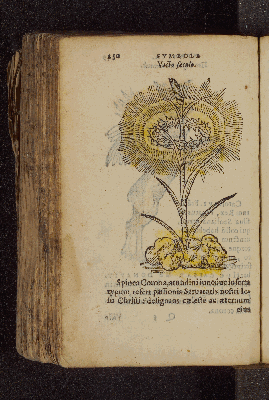 250 SYMBOLA
Victo sæculo.
Spinea Corona, arundini iunctæ, inserta
typum refert passionis Seruatoris nostri Ie-
su Christi: designans cæleste ac æternum
eius